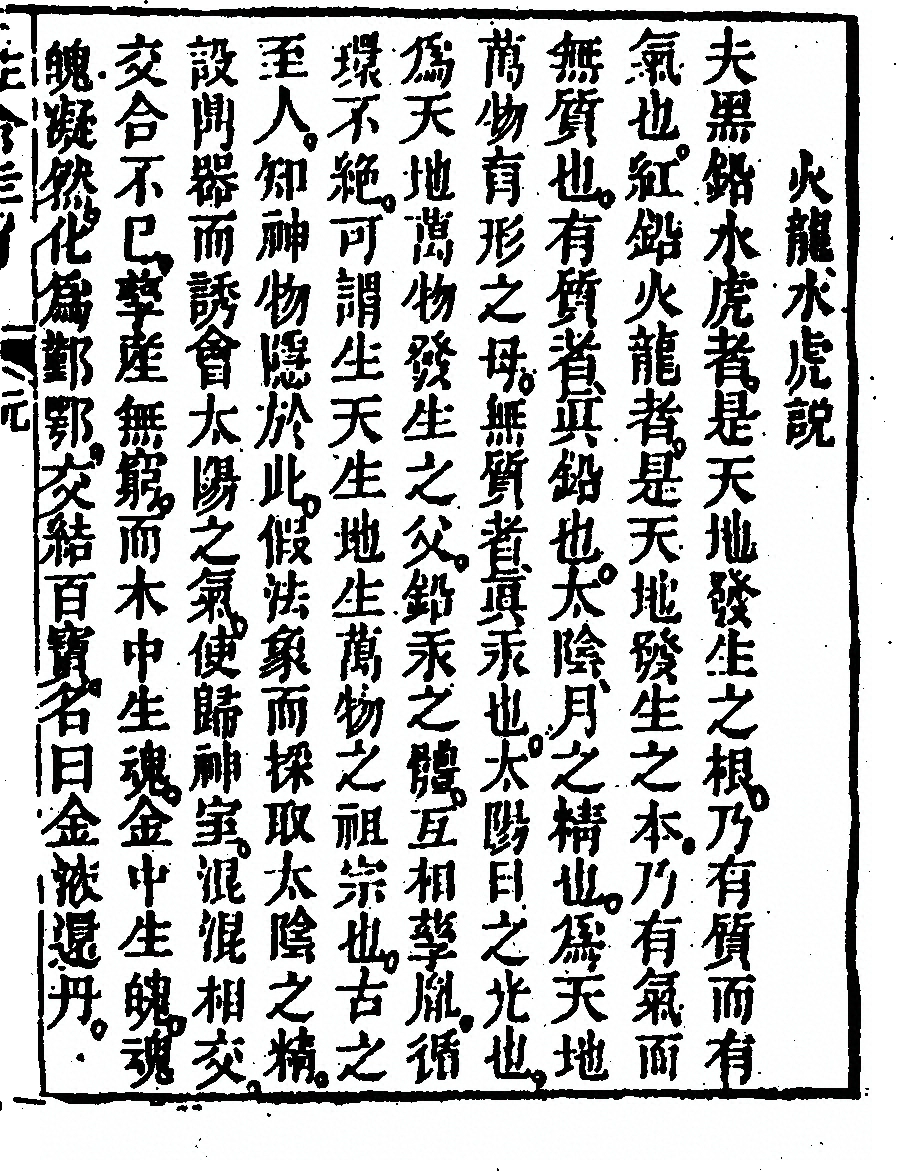 火龍水虎説
夫黑鉛水虎者。是天地發生之根。乃有質而有
氣也。紅鉛火龍者。是天地發生之本。乃有氣而
無質也。有質者、眞鉛也。太陰、月之精也。爲天地
萬物有形之母。無質者、眞汞也。太陽日之光也。
爲天地萬物發生之父。鉛汞之體。互相孳胤。循
環不絶。可謂生天生地生萬物之祖宗也。古之
至人。知神物隱於此。假法象而採取太陰之精。
設鼎器而誘會太陽之氣。使歸神室。混混相交。
交合不已。孳産無窮。而木中生魂。金中生魄。魂
魄凝然。化爲鄞鄂。交結百寶。名曰金液還丹。